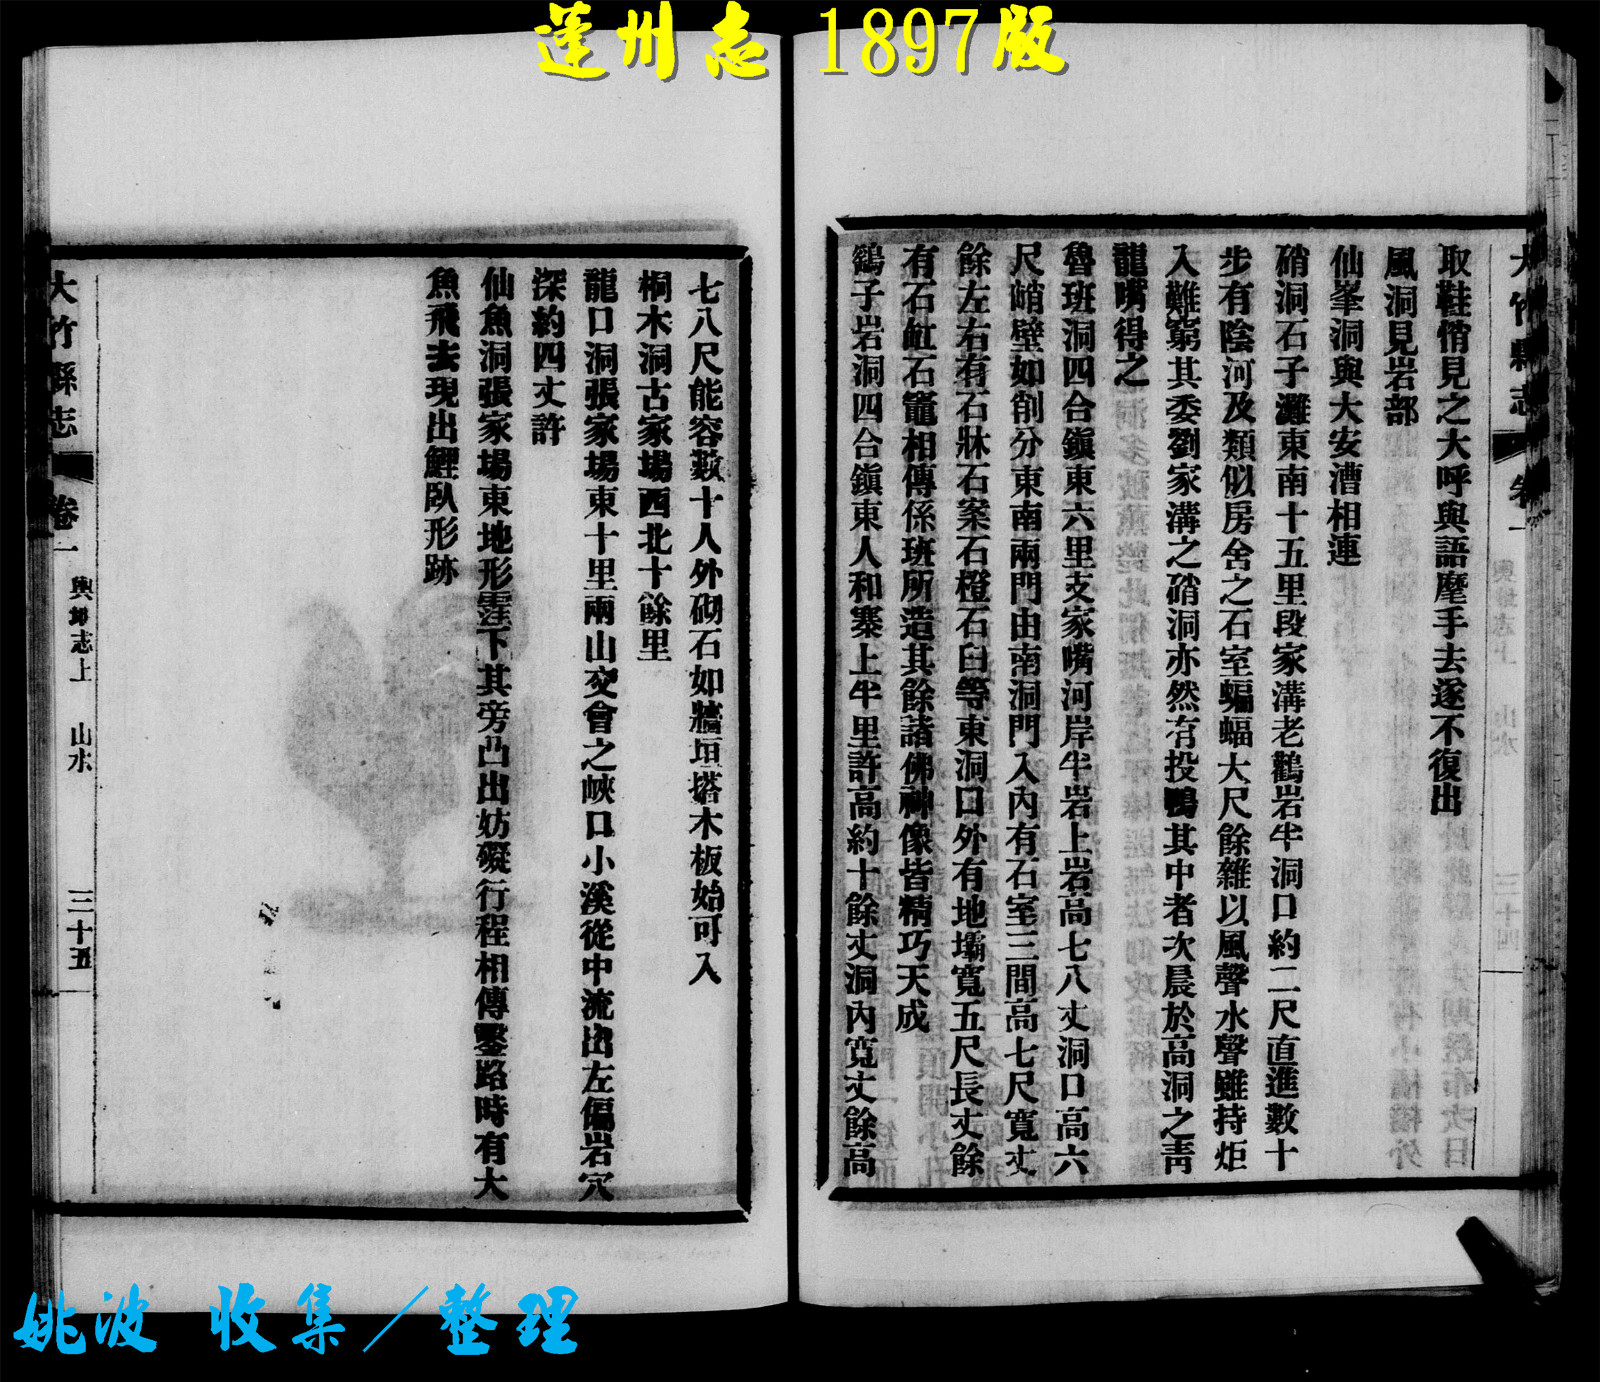 蓬州志 1897版
大竹縣志 卷一 輿地志上 山水 三十四
取鞋俏見之大呼與語麾手去遂不復出
風洞見岩部
仙峯洞與大安漕相連
硝洞石子灘東南十五里段家溝老鸛岩半洞口約二尺直進數十
步有陰河及類似房舍之石室蝙蝠大尺餘雜以風聲水聲雖持炬
入難窮其委劉家溝之硝洞亦然有投鴨其中者次晨於高洞之靑
龍嘴得之
魯班洞四合鎭東六里支家嘴河岸半岩上岩高七八丈洞口高六
尺峭壁如削分東南兩門由南洞門入內有石室三間高七尺寬丈
餘左右有石牀石案石櫈石臼等東洞口外有地壩寬五尺長丈餘
有石缸石竈相傳係班所造其餘諸佛神像皆精巧天成
鷂子岩洞四合鎭東人和寨上半里許高約十餘丈洞內寬丈餘高
七八尺能容數十人外砌石如牆垣塔木板始可入
桐木洞古家場西北十餘里
龍口洞張家場東十里兩山交會之峽口小溪從中流出左偏岩穴
深約四丈許
仙魚洞張家場東地形窪下其旁凸出妨礙行程相傳鑿路時有大
魚飛去現出鯉臥形跡
大竹縣志 卷一 輿地志上 山水 三十五
姚波 收集/整理